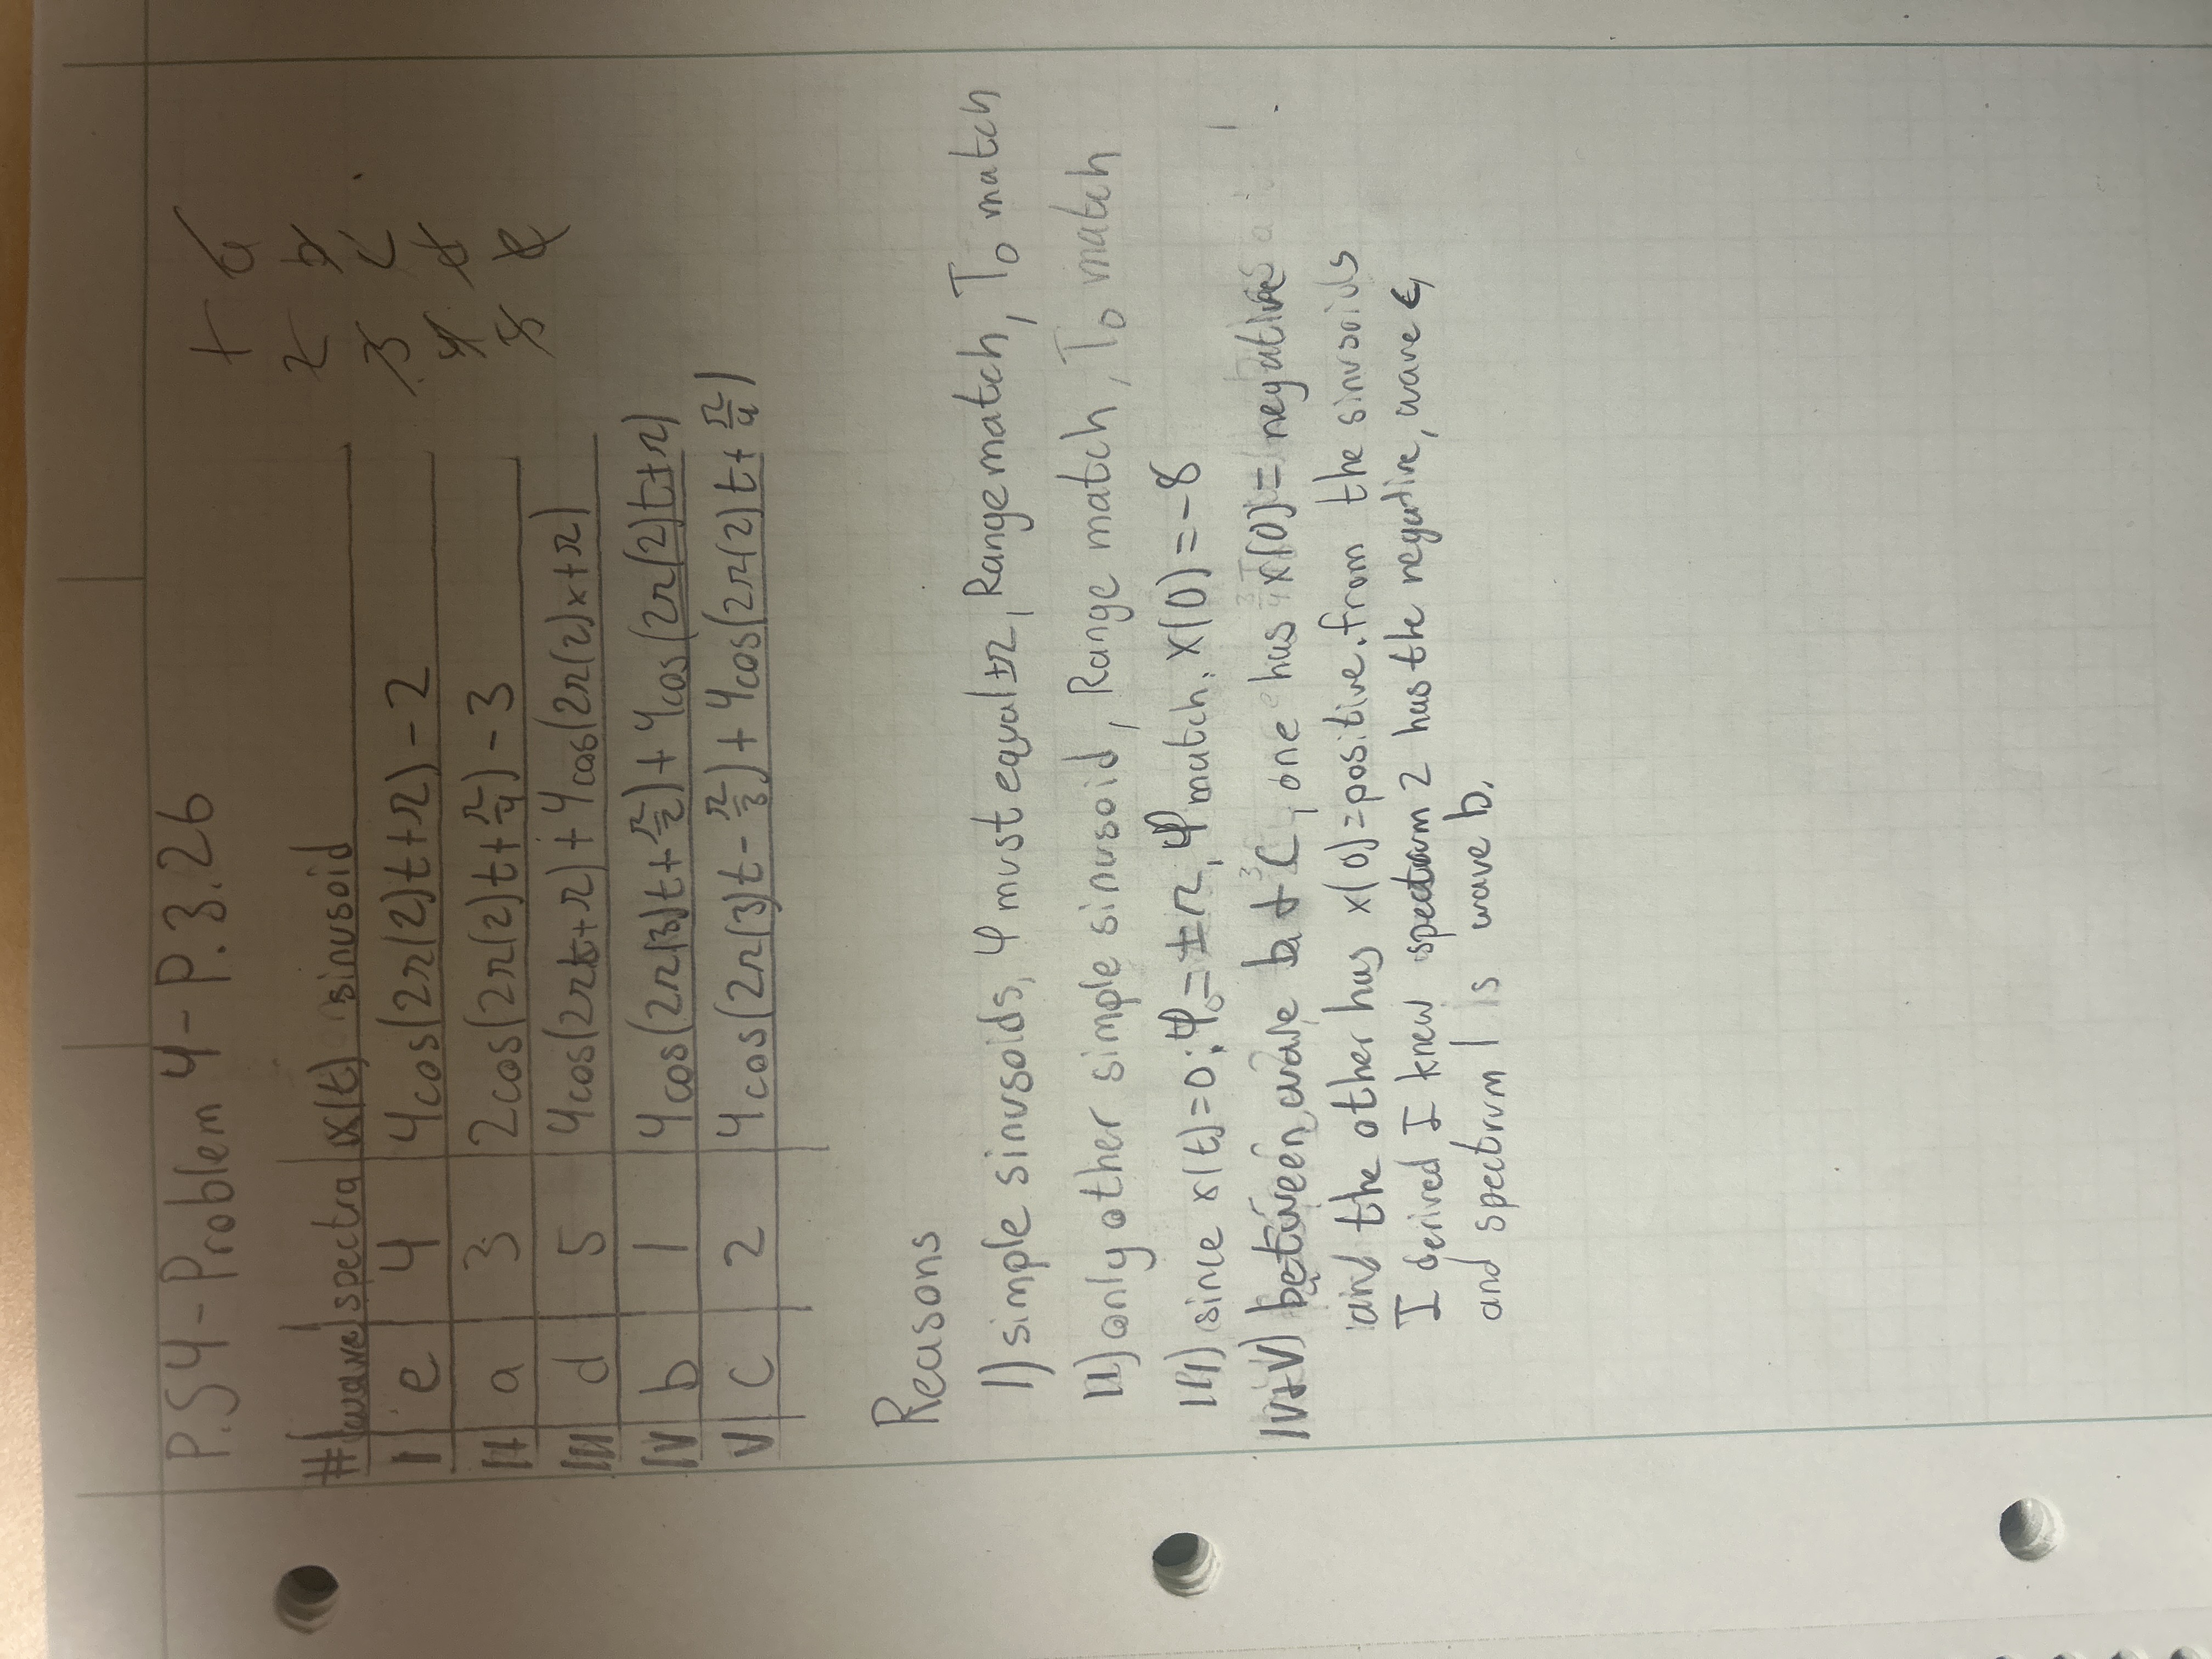 P.S4 - Problem 4 - P.3.26
1 a
2 b
3 c
4 d
5 e
# | wave | spectra | x(t) sinusoid
I | e | 4 | 4cos(2π(2)t+π) - 2
II | a | 3 | 2cos(2π(2)t+π/4) - 3
III | d | 5 | 4cos(2πt+π) + 4cos(2π(2)x+π)
IV | b | 1 | 4cos(2π(3)t+π/2) + 4cos(2π(2)t±π)
V | c | 2 | 4cos(2π(3)t-π/3) + 4cos(2π(2)t+π/4)
Reasons
I) simple sinusoids, φ must equal ±π, Range match, T₀ match
II) only other simple sinusoid, Range match, T₀ match
III) since x(t)=0; φ₀=±π, φ match. x(0)=-8
IV+V) between wave b + c, one has x(0) = negative
and the other has x(0)=positive. from the sinusoids
I derived I knew spectrum 2 has the negative, wave c,
and spectrum 1 is wave b.